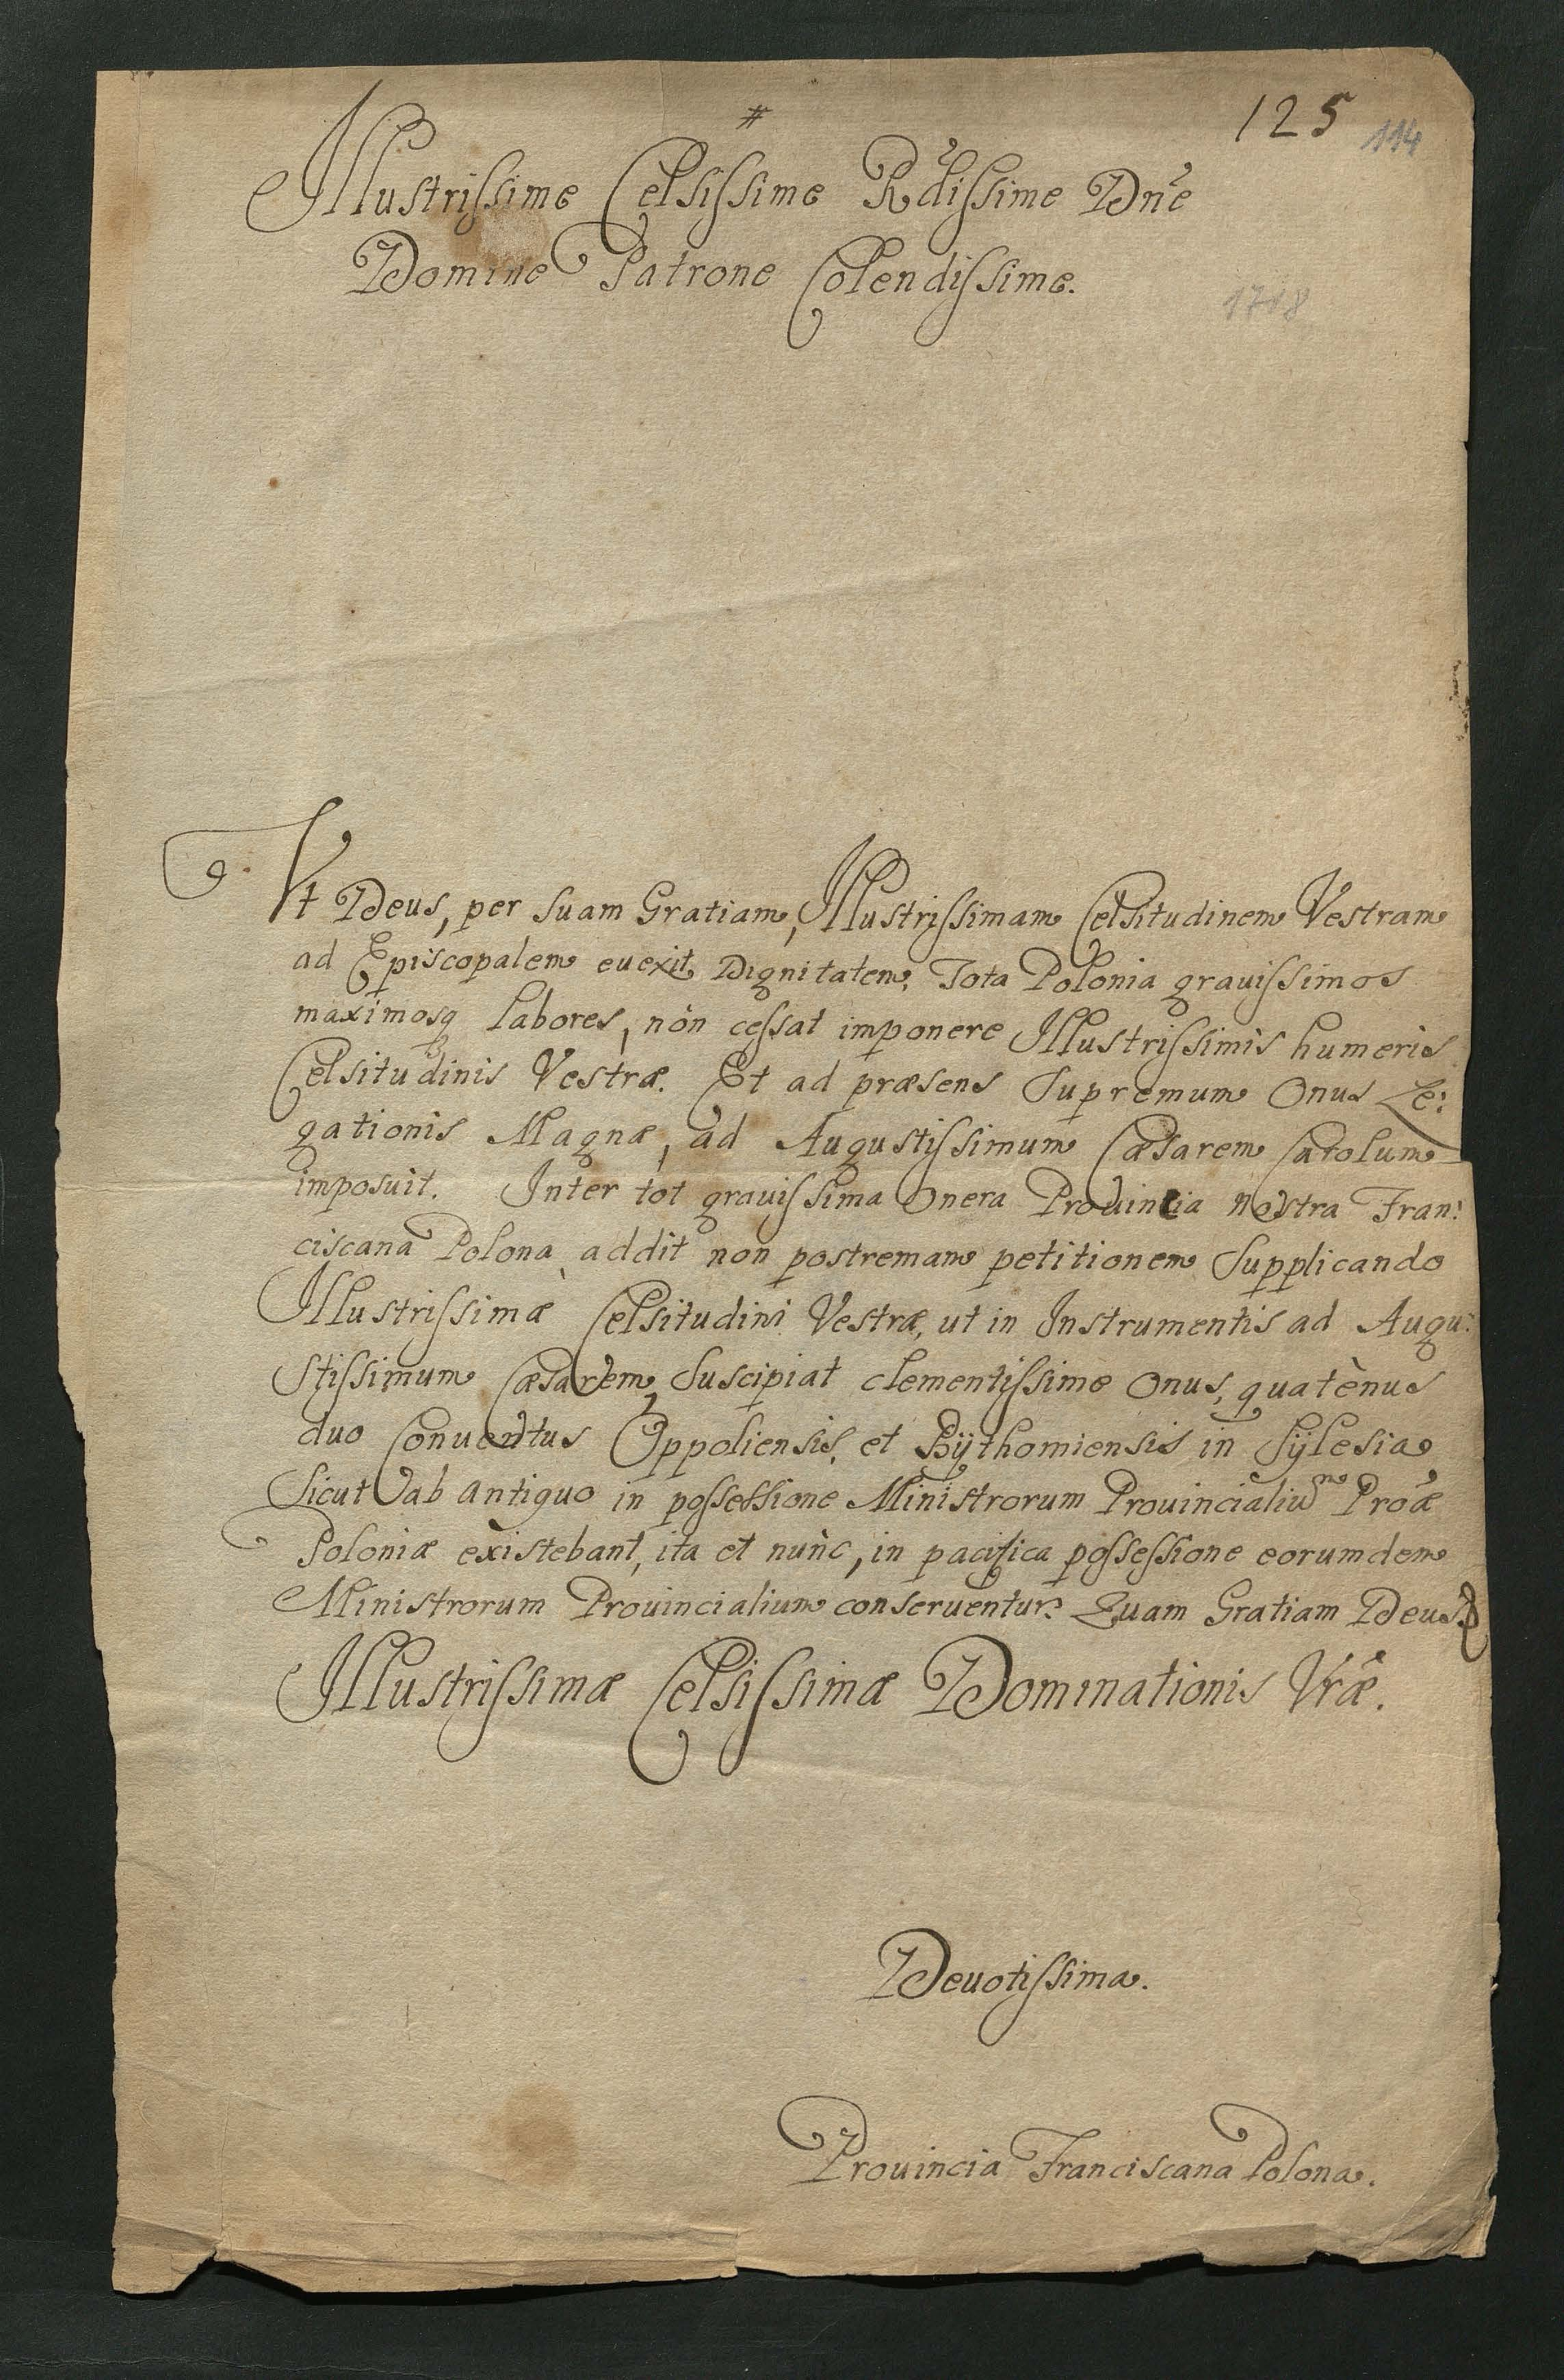 #
125 114
Illustrissime Celsissime Rdissime Dne
Domine Patrone Colendissime.
1718
Vt Deus, per suam Gratiam, Illustrissimam Celsitudinem Vestram
ad Episcopalem euexit Dignitatem, Tota Polonia grauissimos
maximosq labores, non cessat imponere Illustrissimis humeris
Celsitudinis Vestræ. Et ad præsens Supremum Onus Le:
gationis Magnæ, ad Augustissimum Cæsarem Carolum
imposuit. Inter tot grauissima Onera Prouincia nostra Fran:
ciscana Polona addit non postremam petitionem Supplicando
Illustrissimæ Celsitudini Vestræ, ut in Instrumentis ad Augu:
stissimum Cæsarem, Suscipiat clementissime Onus, quatènus
duo Conuentus Oppoliensis, et Bÿthomiensis in Sÿlesia,
Sicut ab antiquo in possessione Ministrorum Prouincialiũm Proæ
Poloniæ existebant, ita et nunc, in pacifica possessione eorumdem
Ministrorum Prouincialium conseruentur. Quam Gratiam Deus
Illustrissimæ Celsissimæ Dominationis Vræ.
Deuotissima.
Prouincia Franciscana Polona.